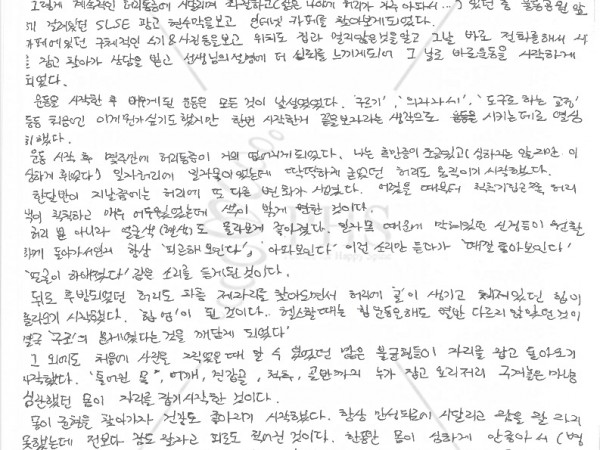 그렇게 계속적인 허리통증에 시달리며 좌절하고 (젊은 나이에 허리가 자주 아파서...) 있던 중 운동공원 앞
에 걸려있던 SLSE 광고 현수막을보고 인터넷 카페를 찾아보게되었다.
카페에있던 구체적인 수기&사진등을보고 위치도 집과 멀지않은것을알고 그날 바로 전화를해서 시
간 잡고 찾아가 상담을 받고 선생님의설명에 더 신뢰를 느끼게되어 그 날로 바로운동을 시작하게
되었다.
운동을 시작한 후 배우게된 운동은 모든 것이 낯설었었다. '구르기', '의자자세', '도구로 하는 교정'
등등 처음에는 이게뭔가싶기도 했지만 한번 시작한거 끝을보자라는 생각으로 운동을 시키는데로 열심
히했다.
운동 시작 후 몇주만에 허리통증이 거의 없어지게되었다. 나는 휴만증이 조금있고 (심하지는 않을지라도
심하게 휘었다) 일자허리에 일자목이었는데 딱딱하게 굳었던 허리도 움직이기 시작했다.
한달반이 지났을때는 허리에 또 다른 변화가 생겼다. 여렸을 때부터 척추기립근쪽 허리
색이 칙칙하고 매우 어두웠었는데 색이 밝게 변한 것이다.
허리 뿐 아니라 얼굴색(혈색)도 몰라보게 좋아졌다. 일자목 때문에 막혀있던 신경들이 원활
하게 돌아가서인지 항상 '피곤해보인다', '아파보인다' 이런 소리만 듣다가 '때깔 좋아보인다'
'얼굴이 하얘졌다' 같은 소리를 듣게된 것이다.
뒤로 후방되었던 허리도 차츰 제자리를 찾아오면서 허리에 '골'이 생기고 처져있던 힙이
올라오기 시작했다. '힙업'이 된 것이다.. 헬스할때는 힙운동을해도 별반 다르지 않았던 것이
결국 '구조'의 문제였다는것을 깨닫게 되었다'
그 외에도 처음에 사진을 찍었을때 알 수 없었던 많은 불균형들이 자리를 잡고 돌아오기
시작했다. '틀어진 목', 어깨, 견갑골, 척추, 골반까지 누가 잡고 요리저리 구겨놓은마냥
심란했던 몸이 자리를 잡기시작한 것이다.
몸이 균형을 찾아가자 건강도 좋아지기 시작했다. 항상 만성피로에 시달리고 잠을 잘 자지
못했는데 전보다 잠도 잘자고 피로도 적어진 것이다. 한동안 몸이 심하게 안좋아서 (병